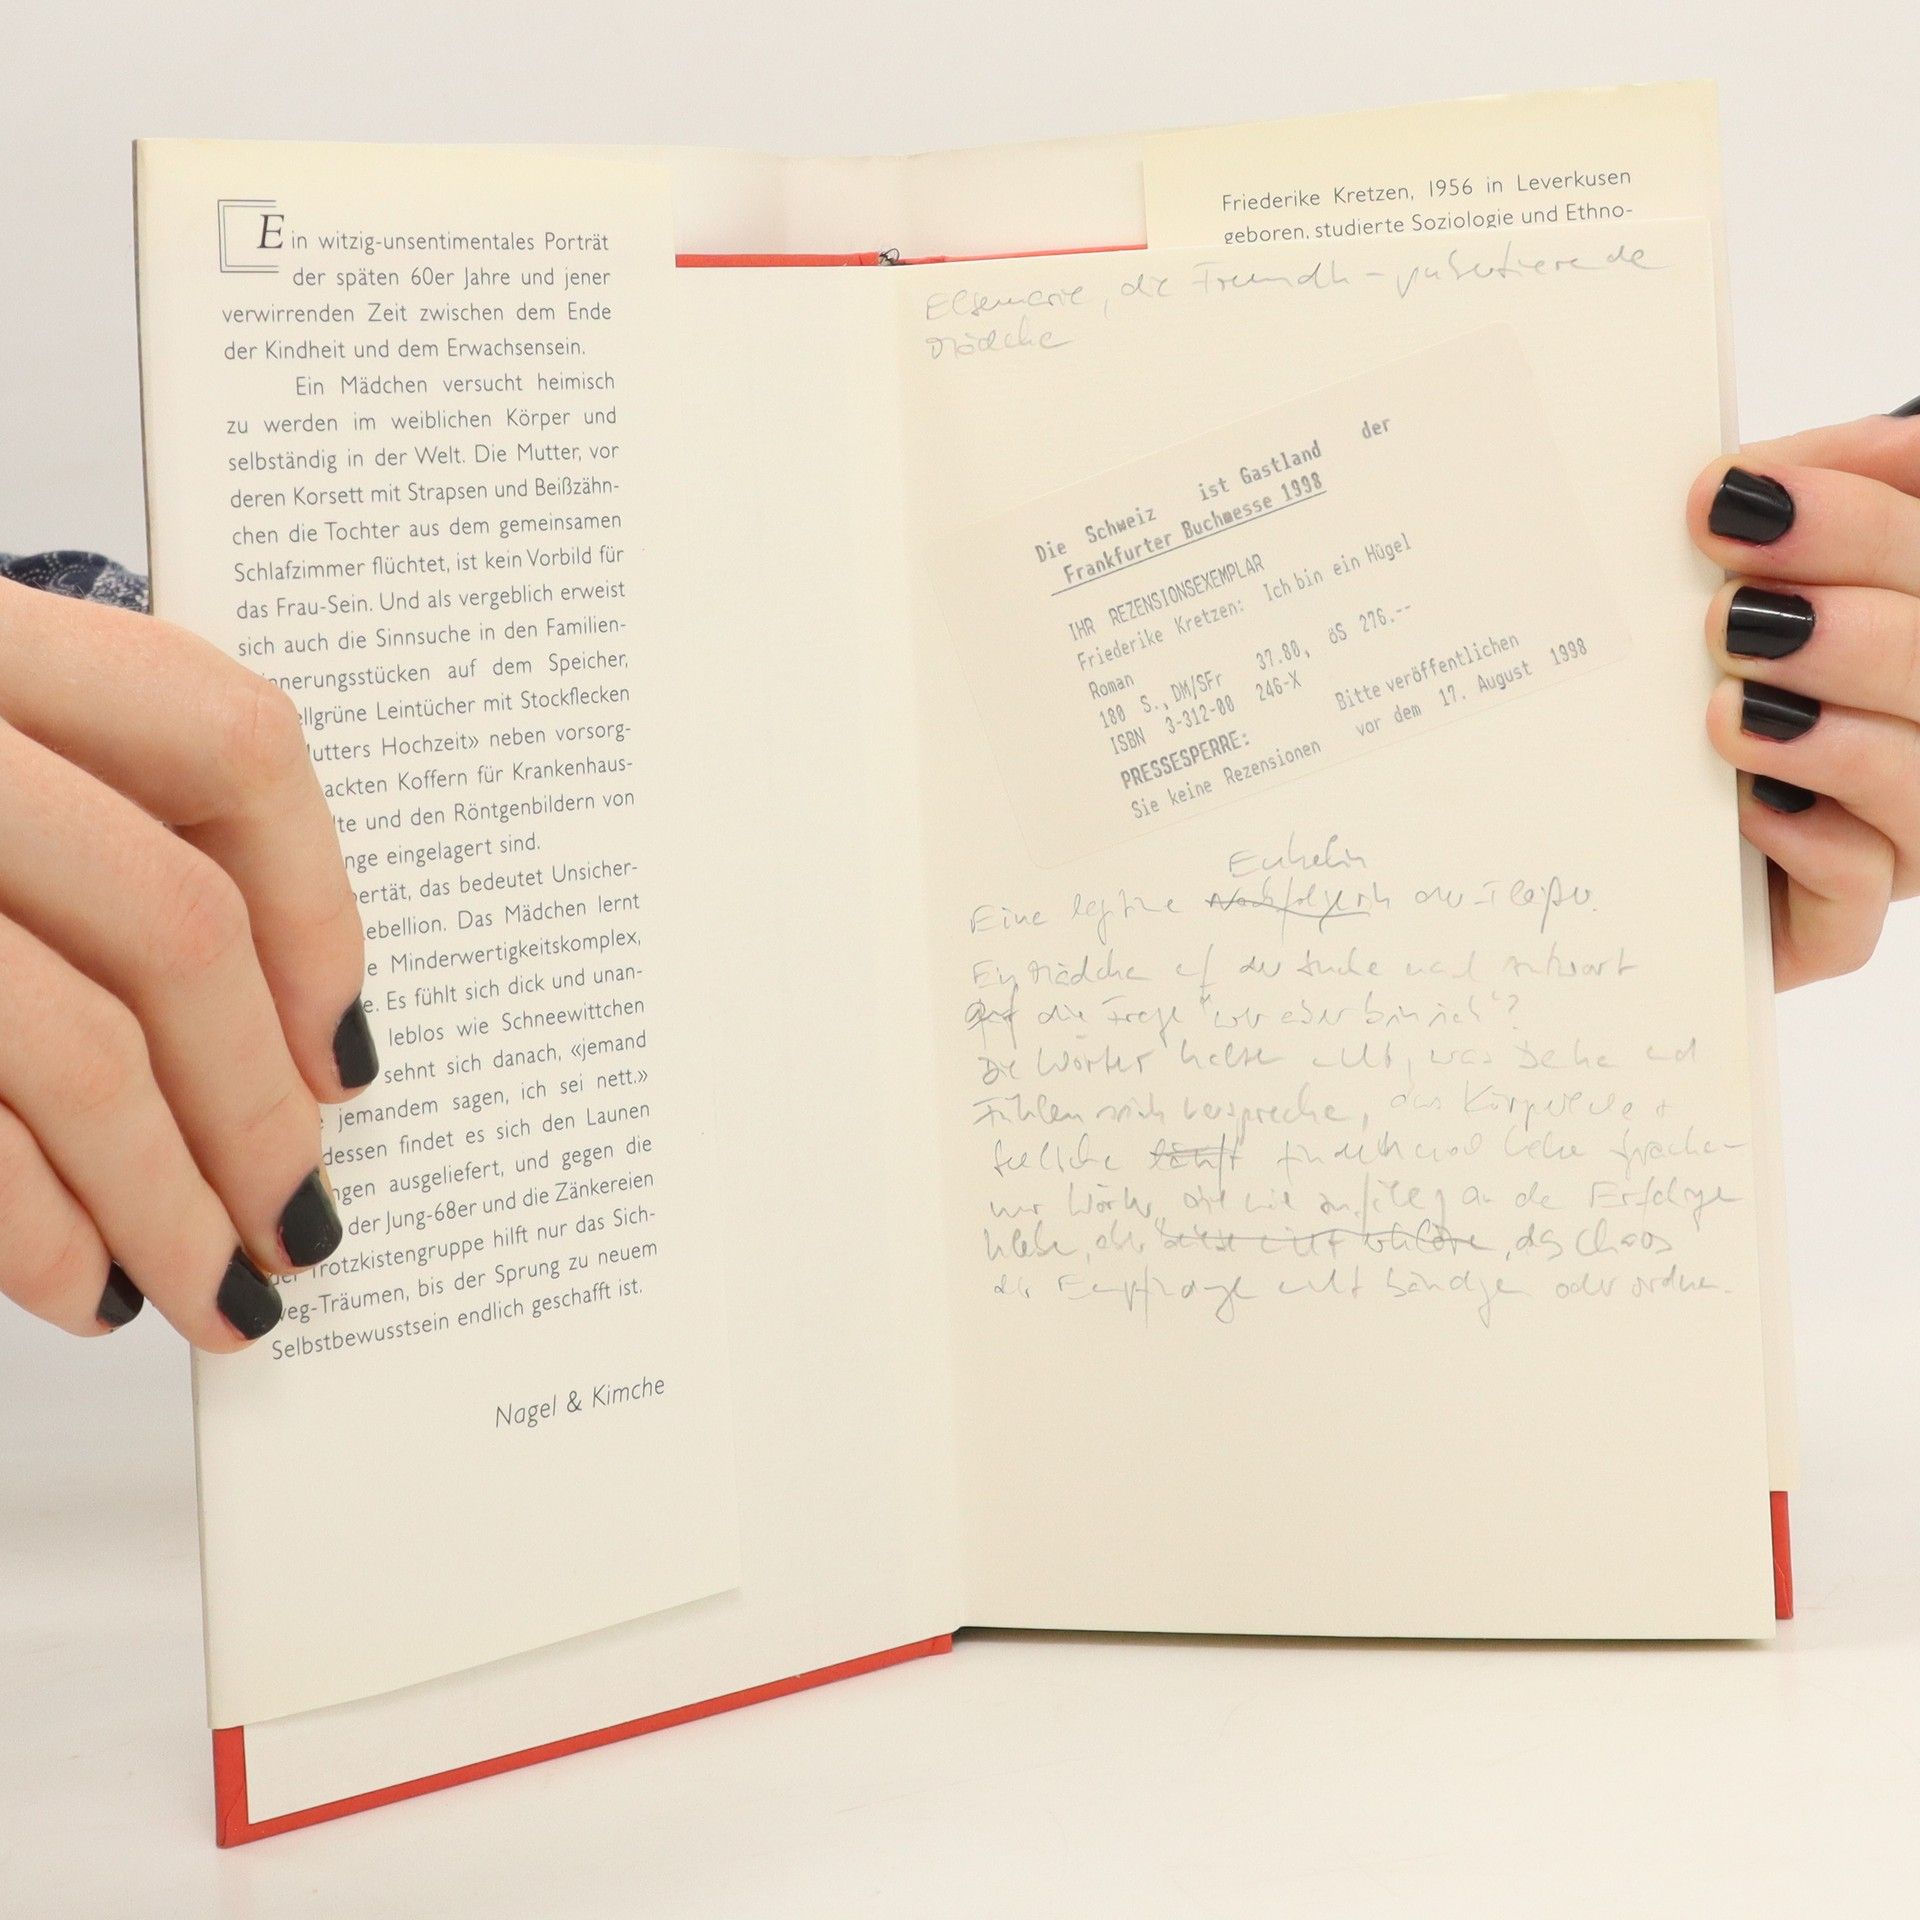 Ein witzig-unsentimentales Porträt
der späten 60er Jahre und jener
verwirrenden Zeit zwischen dem Ende
der Kindheit und dem Erwachsensein.
Ein Mädchen versucht heimisch
zu werden im weiblichen Körper und
selbständig in der Welt. Die Mutter, vor
deren Korsett mit Strapsen und Beißzähn-
chen die Tochter aus dem gemeinsamen
Schlafzimmer flüchtet, ist kein Vorbild für
das Frau-Sein. Und als vergeblich erweist
sich auch die Sinnsuche in den Familien-
nnerungsstücken auf dem Speicher,
ellgrüne Leintücher mit Stockflecken
utters Hochzeit» neben vorsorg-
ackten Koffern für Krankenhaus-
te und den Röntgenbildern von
nge eingelagert sind.
bertät, das bedeutet Unsicher-
ebellion. Das Mädchen lernt
e Minderwertigkeitskomplex,
e. Es fühlt sich dick und unan-
leblos wie Schneewittchen
sehnt sich danach, «jemand
jemandem sagen, ich sei nett.»
dessen findet es sich den Launen
ngen ausgeliefert, und gegen die
der Jung-68er und die Zänkereien
der Trotzkistengruppe hilft nur das Sich-
weg-Träumen, bis der Sprung zu neuem
Selbstbewusstsein endlich geschafft ist.
Nagel & Kimche
Friederike Kretzen, 1956 in Leverkusen
geboren, studierte Soziologie und Ethno-
Elsemarie, die
Mädche
Die Schweiz ist Gastland der
Frankfurter Buchmesse 1998
IHR REZENSIONSEXEMPLAR
Friederike Kretzen: Ich bin ein Hügel
Roman
180 S., DM/SFr 37.80, öS 276.--
ISBN 3-312-00 246-X
PRESSESPERRE: Bitte veröffentlichen
Sie keine Rezensionen vor dem 17. August 1998
Enkelin
Eine der
Ein Mädche auf der Suche nach Antwort
auf die Frage "wer aber bin ich"?
Die Wörter was Sehe und
Fühlen verspreche, das
seelische
nur Wörter, die an de
das Chaos
der bändigen oder ordne.